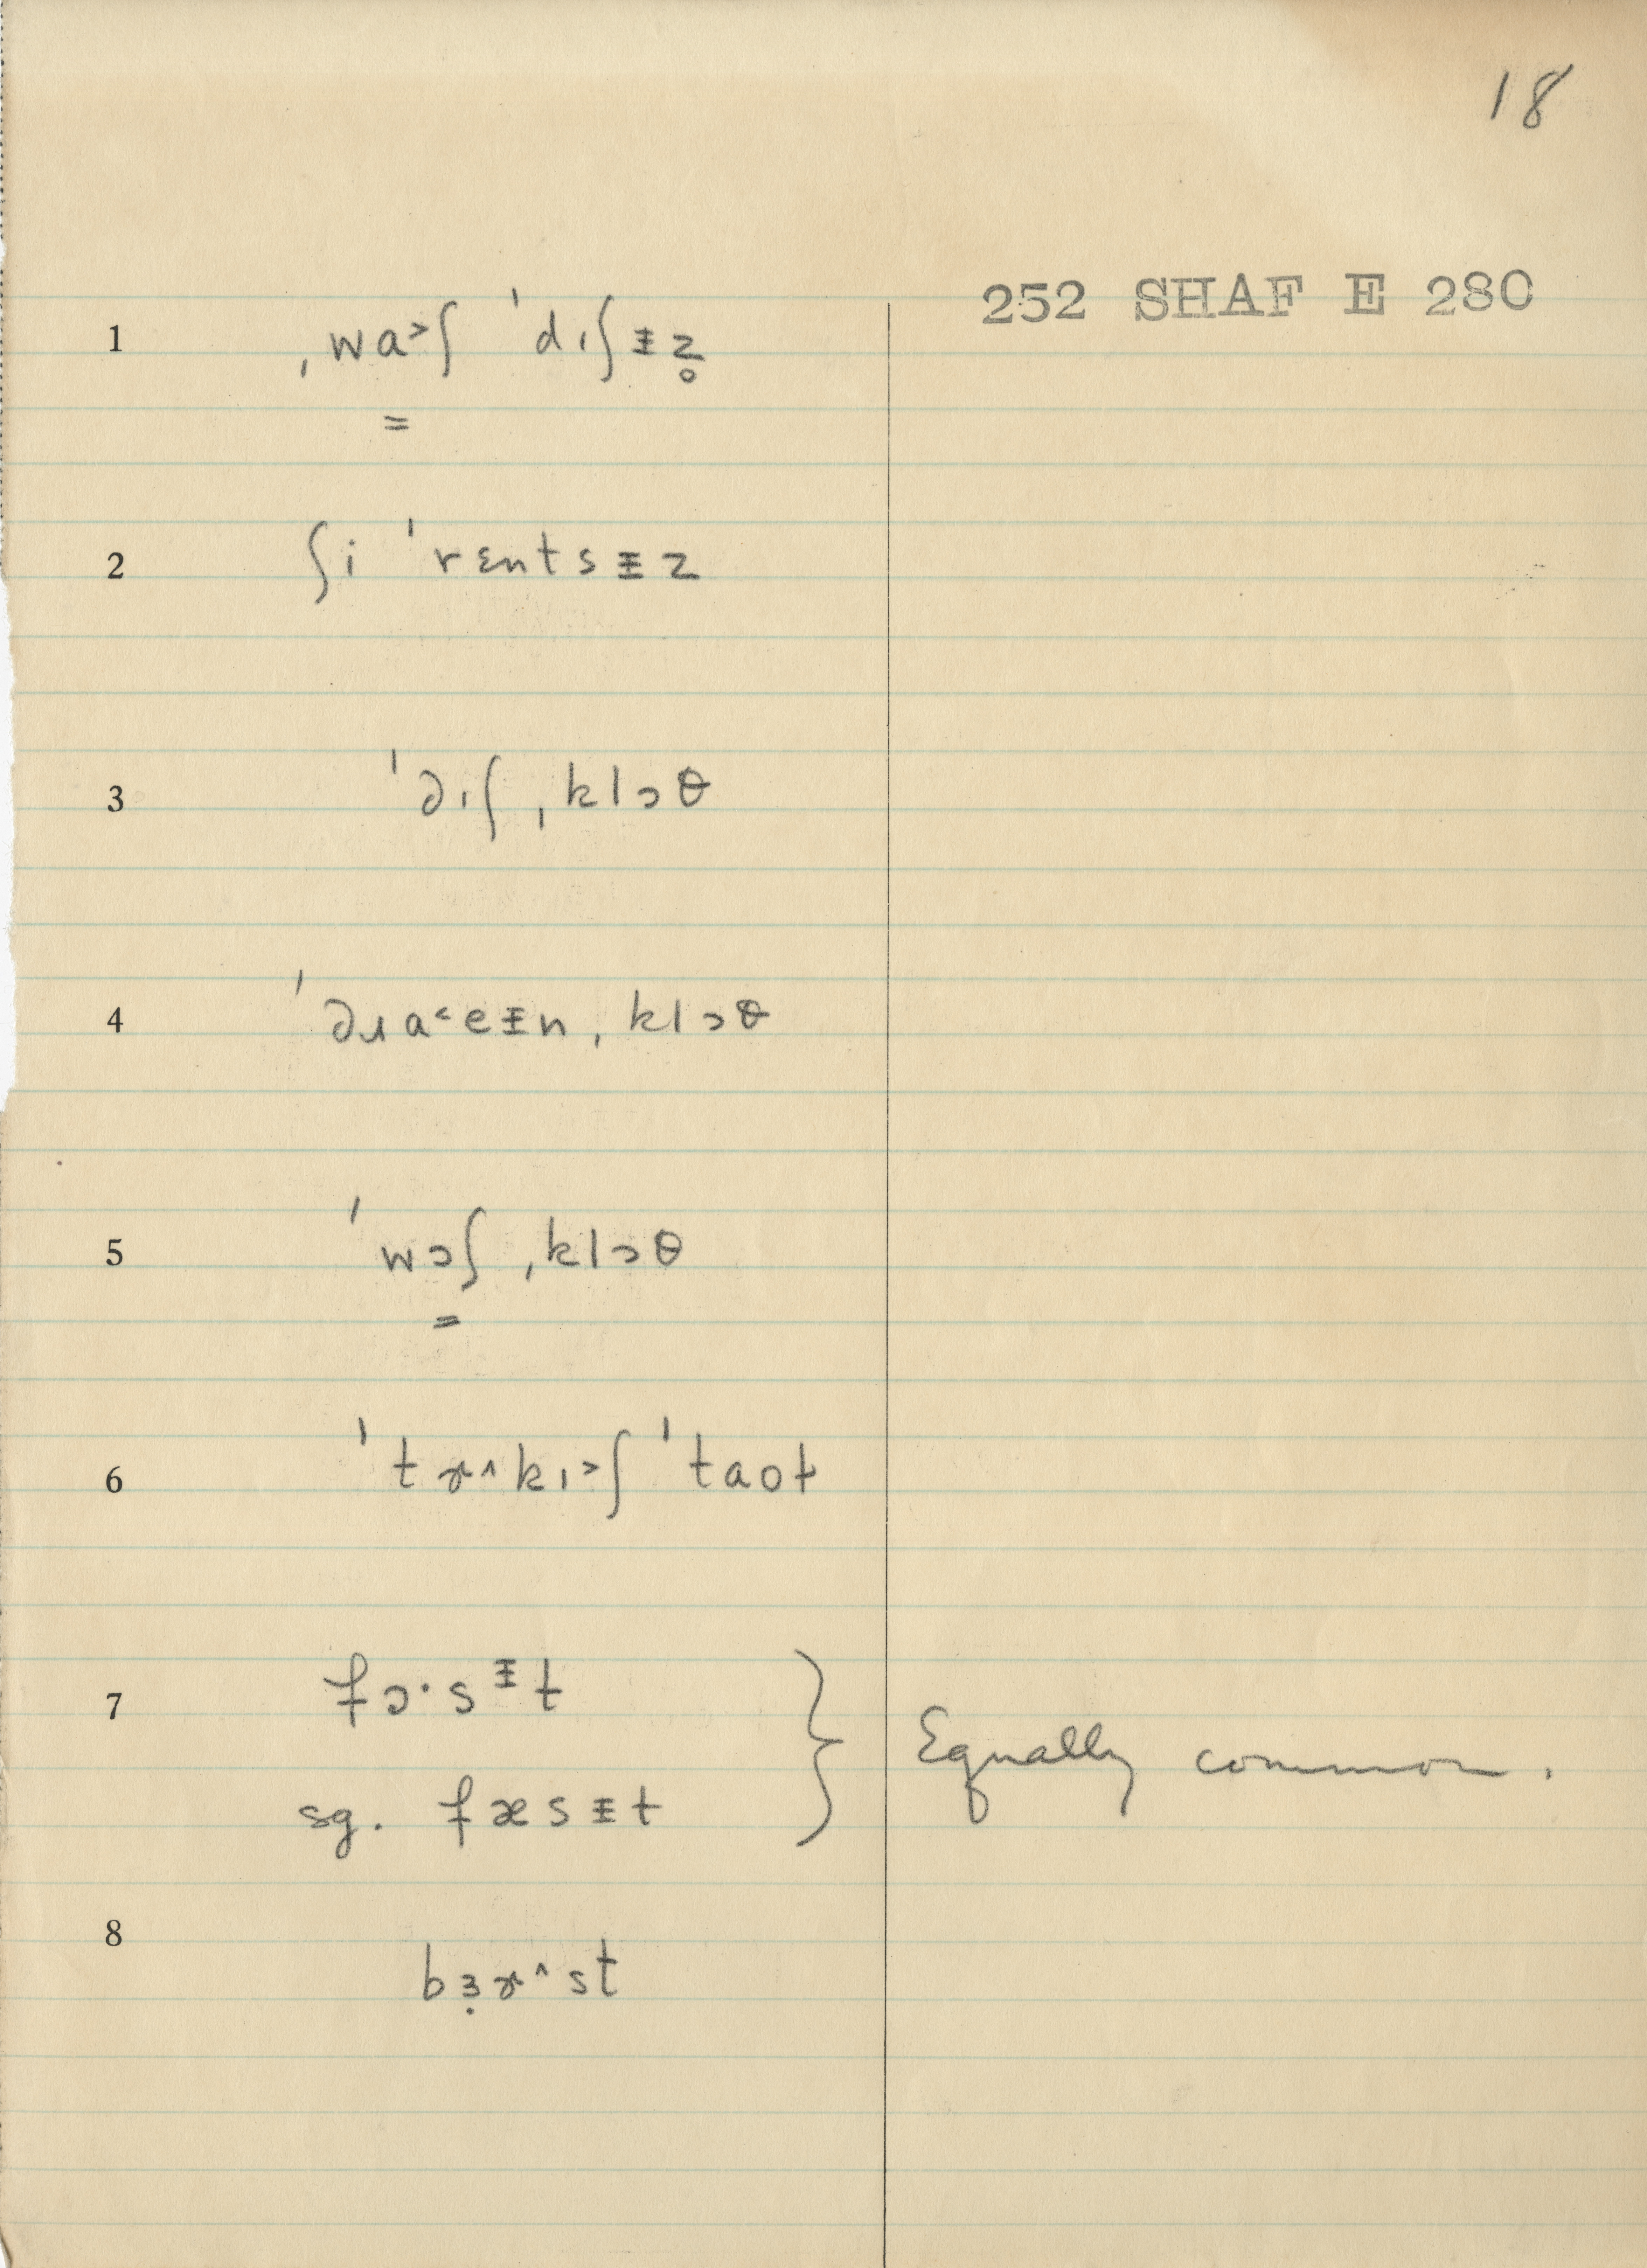 18
252 SHAF E 280
1 ˌwa˃ʃ ˈdɪʃɨz̥
=
2 ʃi ˈrɛntsɨz
3 ˈdɪʃ ˌklɔθ
4 ˈdɹa˂eɨn ˌklɔθ
5 ˈwɔʃ ˌklɔθ
=
6 ˈtɚ^kɪ˃ʃ ˈtaot
7 fɔ·sᵻt
Equally common.
sg. fæsɨt
8 bɜ̣ɚ^st